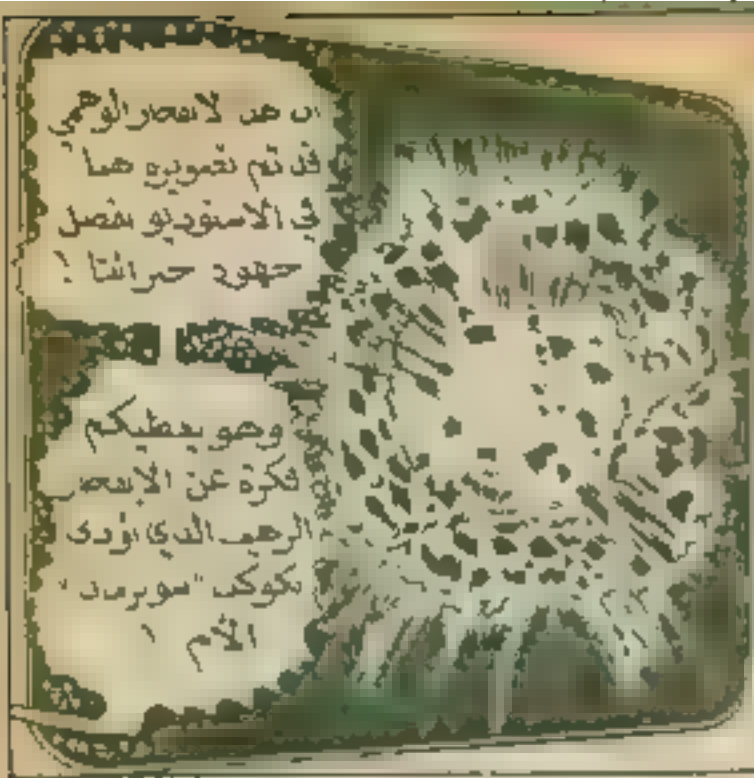 ان هذا الانفجار الوهمي
قد تم تصويره هنا
في الاستوديو بفضل
جهود خبرائنا !
وهو يعطيكم
فكرة عن الانفجار
الرهيب الذي أودى
بكوكب "سوبرمان"
الأم !